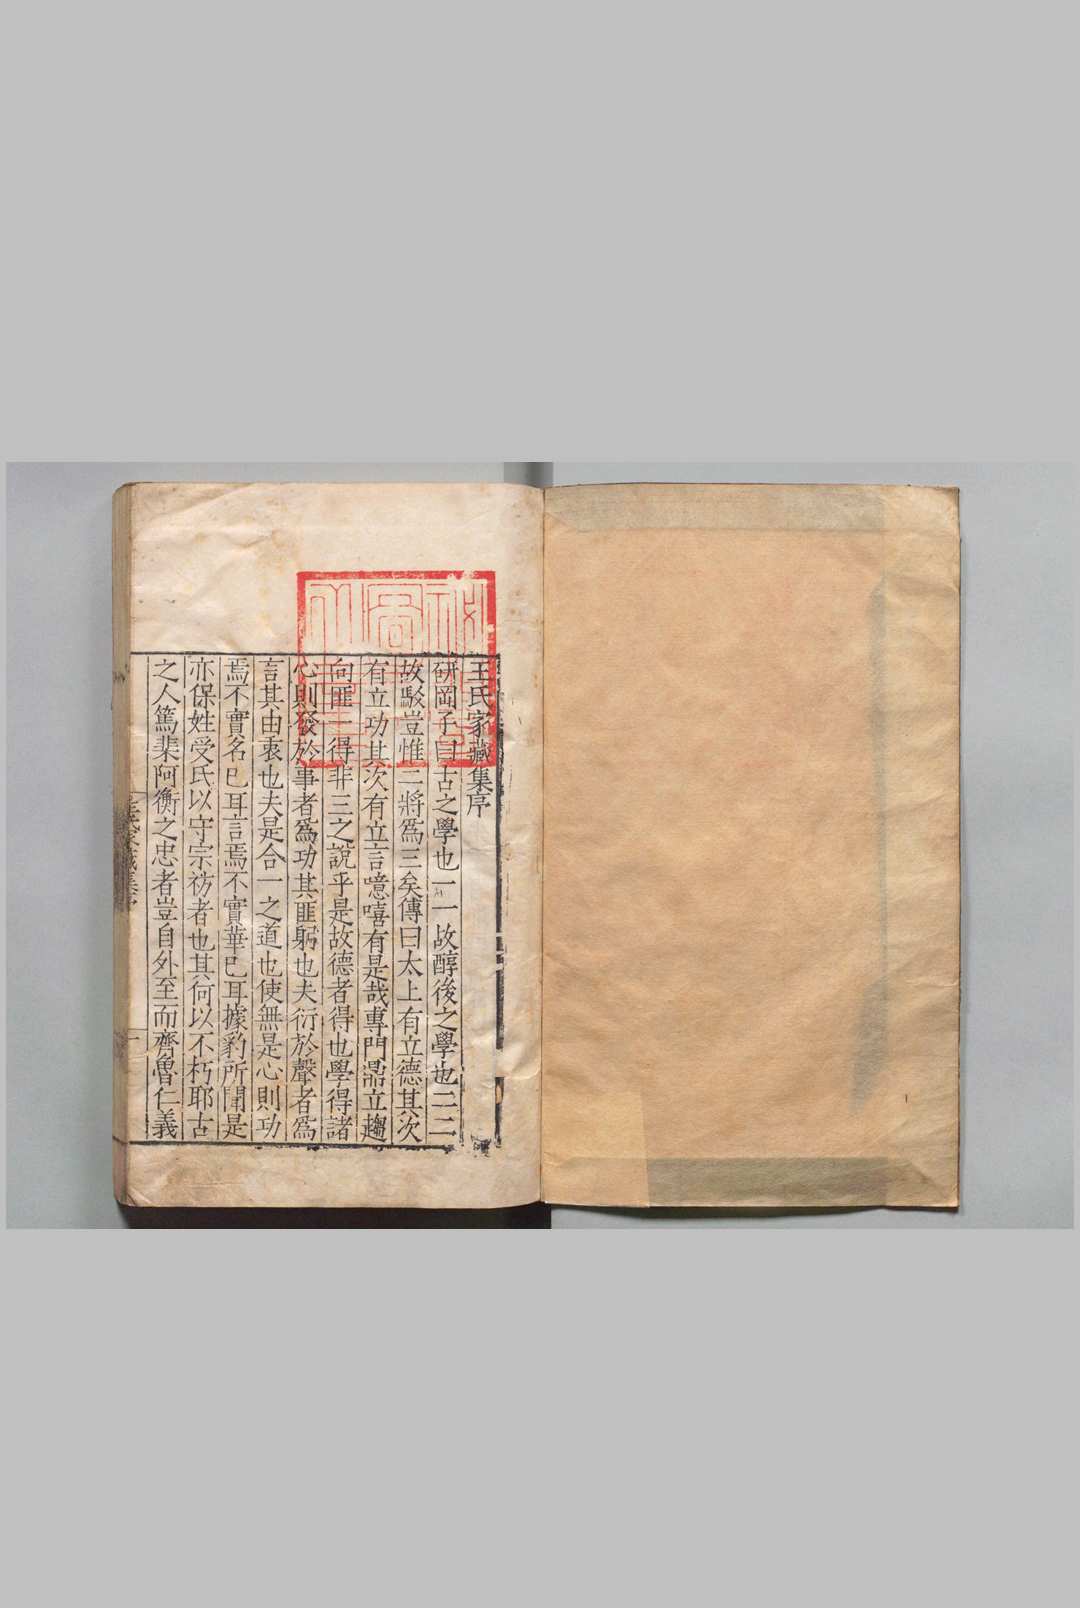 王氏家藏集序
研岡子曰古之學也一一故醇後之學也二二
故駁豈惟二將爲三矣傳曰太上有立德其次
有立功其次有立言噫嘻有是哉專門鼎立趨
向匪一得非三之說乎是故德者得也學得諸
心則發於事者爲功其匪躬也夫衍於聲者爲
言其由衷也夫是合一之道也使無是心則功
焉不實名巳耳言焉不實華巳耳據豹所聞是
亦保姓受氏以守宗祊者也其何以不朽耶古
之人篤棐阿衡之忠者豈自外至而齊魯仁義